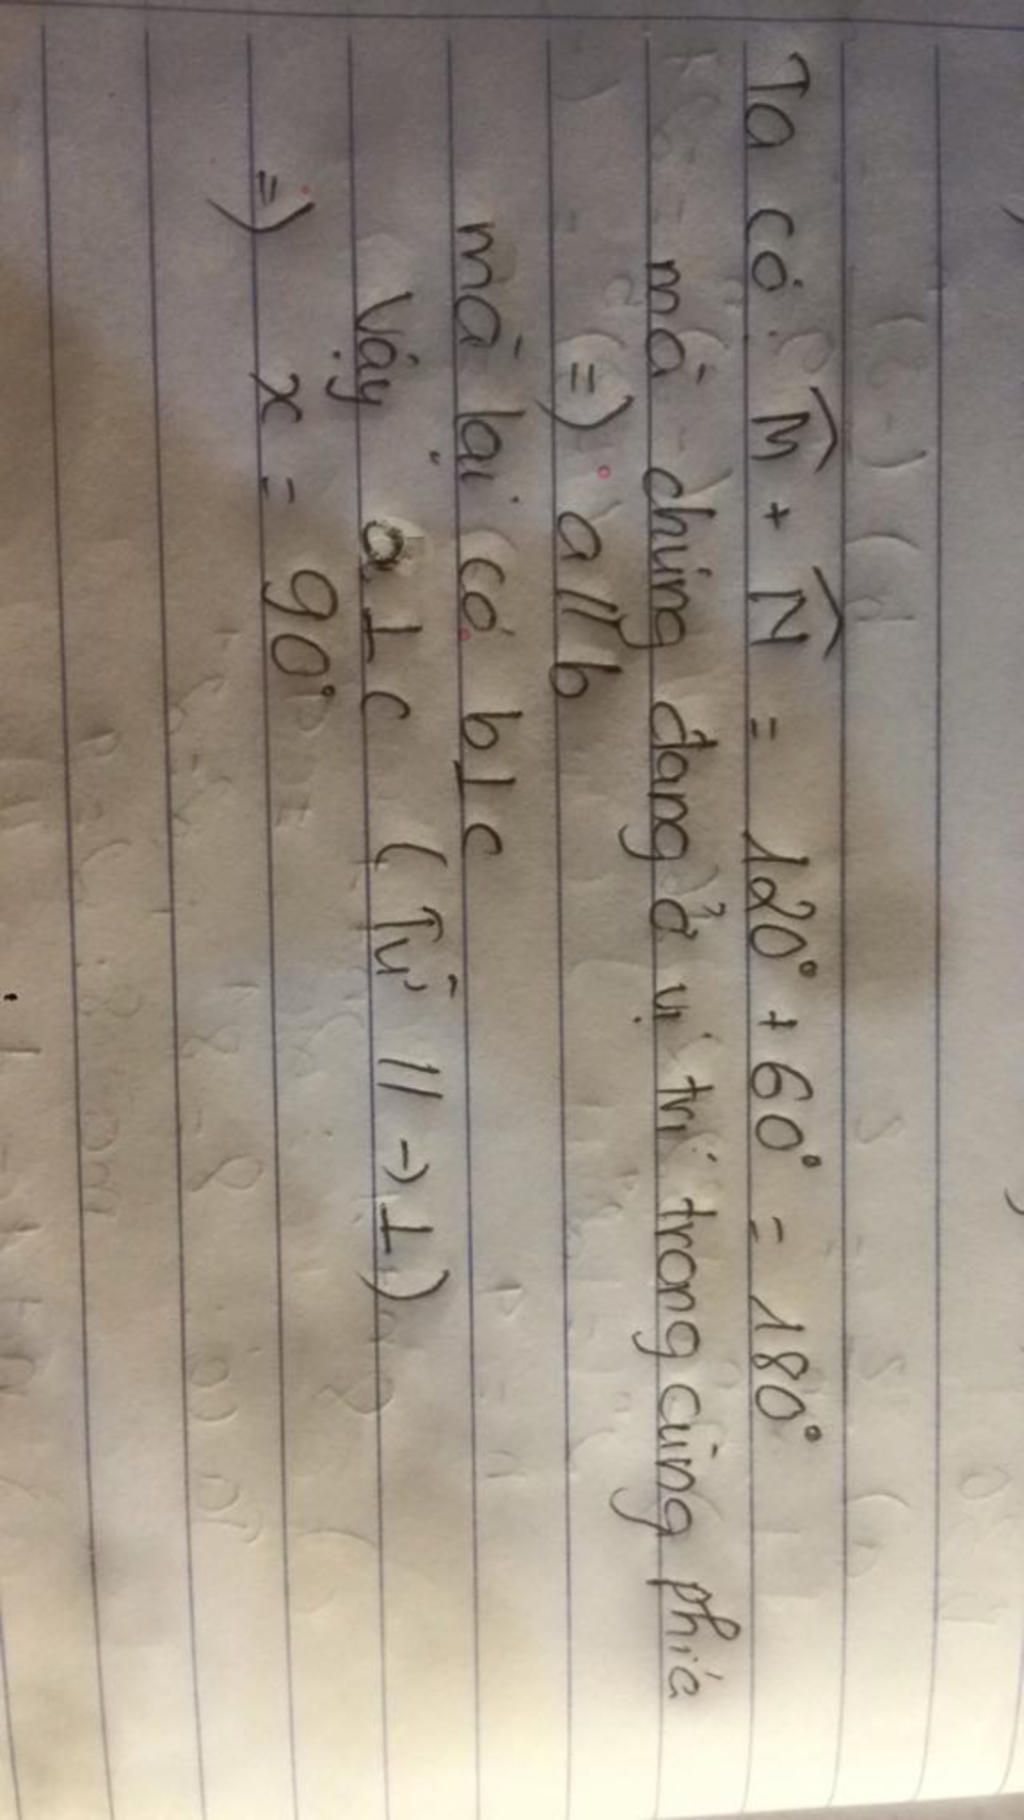 Ta có: M̂ + N̂ = 120° + 60° = 180°
mà chúng đang ở vị trí trong cùng phía
=) a // b
mà lại có b ⊥ c
Vậy a ⊥ c ( Từ // → ⊥ )
=) x = 90°